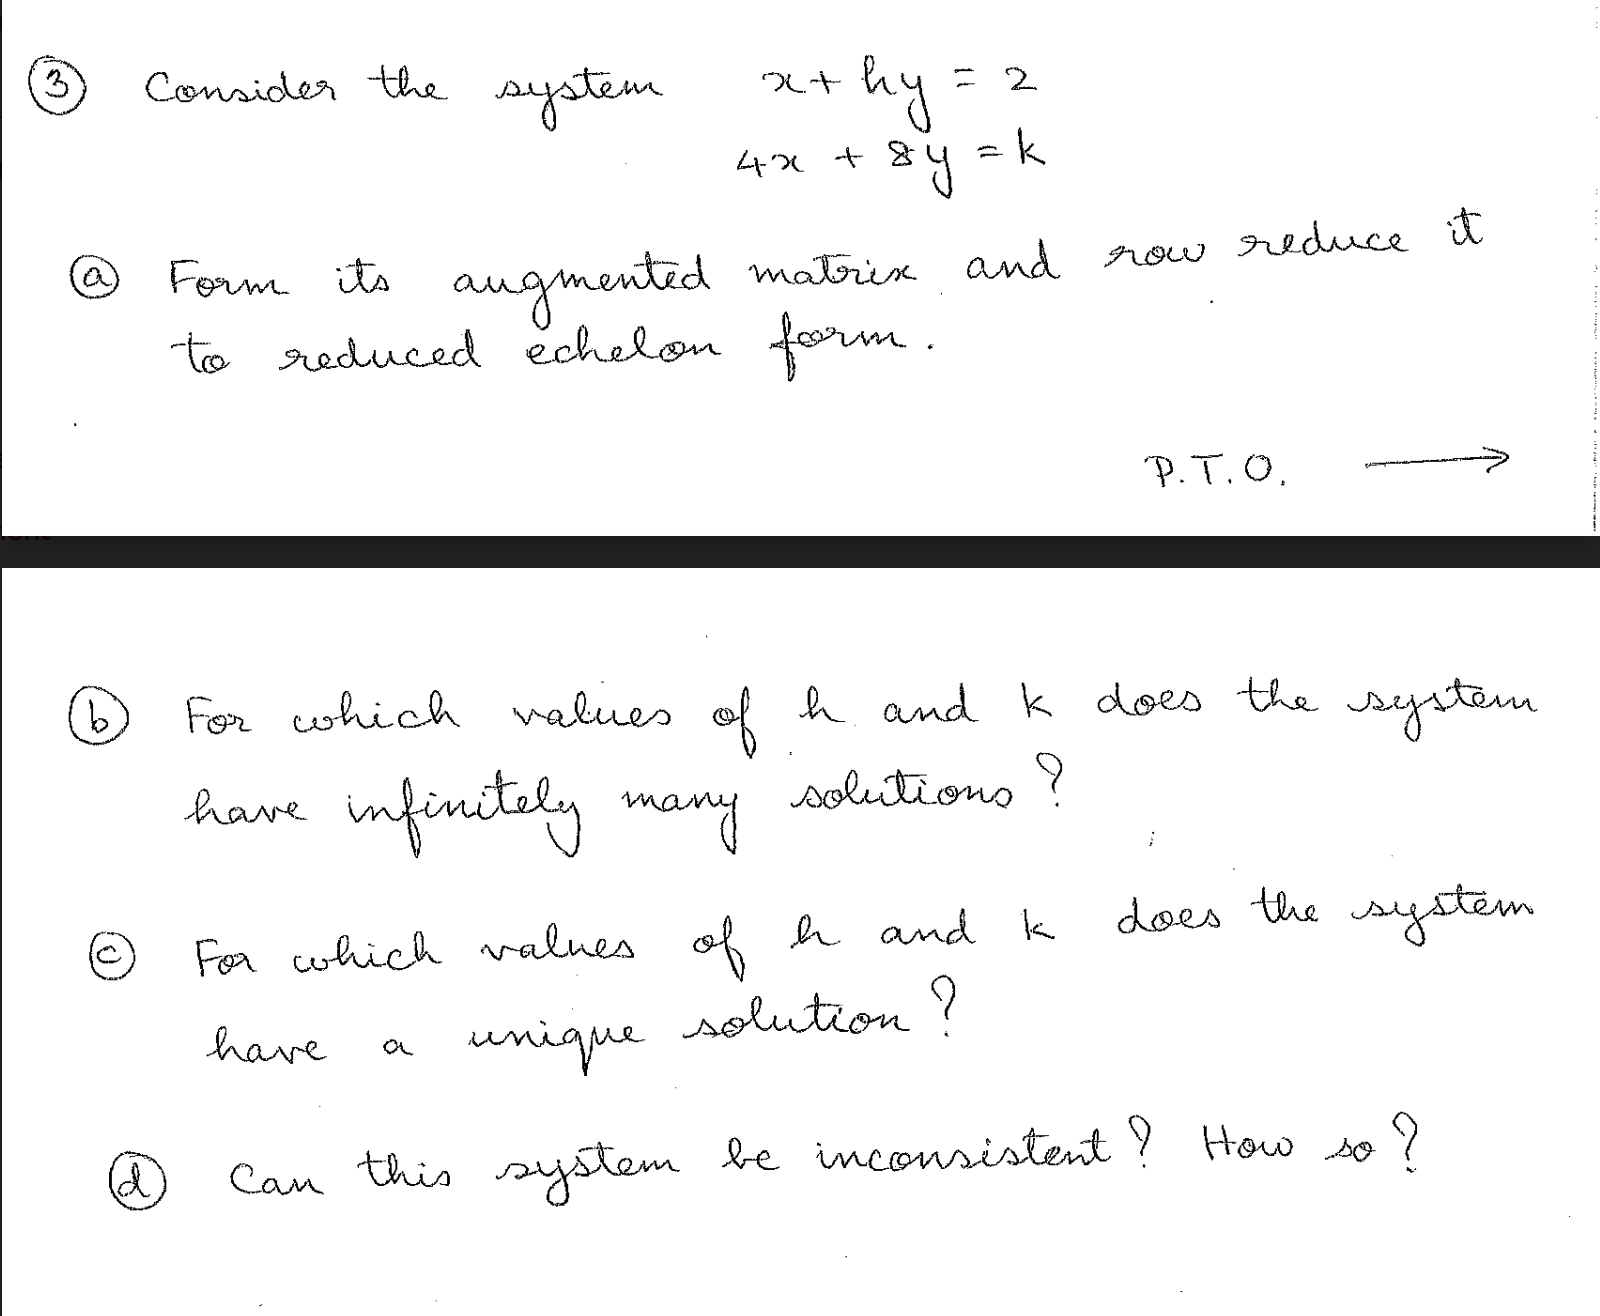 ③ Consider the system x + hy = 2
4x + 8y = k
ⓐ Form its augmented matrix and row reduce it
to reduced echelon form.
P.T.O. →
ⓑ For which values of h and k does the system
have infinitely many solutions?
ⓒ For which values of h and k does the system
have a unique solution?
ⓓ Can this system be inconsistent? How so?